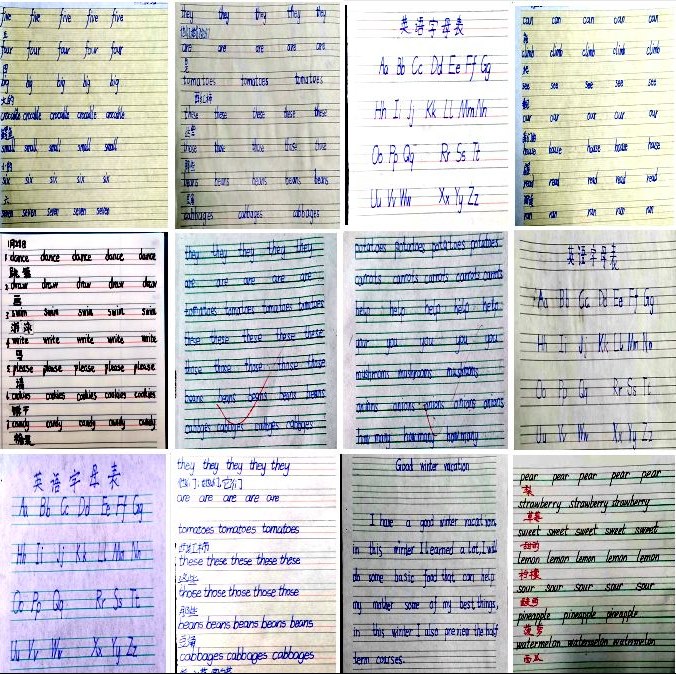 five five five five five
五
four four four four four
四
big big big big big
大的
crocodile crocodile crocodile crocodile
鳄鱼
small small small small
小的
six six six six six
六
seven seven seven seven
they they they they
are are are are
是
tomatoes tomatoes tomatoes
西红柿
these these these these
这些
those those those those
那些
beans beans beans beans
豆角
cabbages cabbages
英语字母表
Aa Bb Cc Dd Ee Ff Gg
Hh Ii Jj Kk Ll Mm Nn
Oo Pp Qq Rr Ss Tt
Uu Vv Ww Xx Yy Zz
can can can can can
climb climb climb climb
see see see see
our our our our
house house house house
read read read read
ran ran ran ran
1月22日
1. dance dance dance dance dance
跳舞
2. draw draw draw draw draw
画
3. swim swim swim swim swim
游泳
4. write write write write write
写
5. please please please please please
请
6. cookies cookies cookies cookies cookies
饼干
7. candy candy candy candy candy
糖果
they they they they they
are are are are are
tomatoes tomatoes tomatoes tomatoes
these these these these these
those those those those those
beans beans beans beans beans
cabbages cabbages cabbages cabbages
potatoes potatoes potatoes potatoes
carrots carrots carrots carrots carrots
help help help help help
your you you you you
mushrooms mushrooms mushrooms
onions onions onions onions onions
how many how many how many
英语字母表
Aa Bb Cc Dd Ee Ff Gg
Hh Ii Jj Kk Ll Mm Nn
Oo Pp Qq Rr Ss Tt
Uu Vv Ww Xx Yy Zz
英语字母表
Aa Bb Cc Dd Ee Ff Gg
Hh Ii Jj Kk Ll Mm Nn
Oo Pp Qq Rr Ss Tt
Uu Vv Ww Xx Yy Zz
they they they they they
他们、她们、它们
are are are are are
tomatoes tomatoes tomatoes
these these these these these
这些
those those those those those
那些
beans beans beans beans beans
豆角
cabbages cabbages cabbages
Good winter vacation
I have a good winter vacation,
in this winter I learned a lot, I will
do some basic food that can help
my mother some of my best things,
in this winter I also preview the half
term courses.
pear pear pear pear pear
梨
strawberry strawberry strawberry
草莓
sweet sweet sweet sweet sweet
甜的
lemon lemon lemon lemon lemon
柠檬
sour sour sour sour sour
酸的
pineapple pineapple pineapple
菠萝
watermelon watermelon watermelon
西瓜